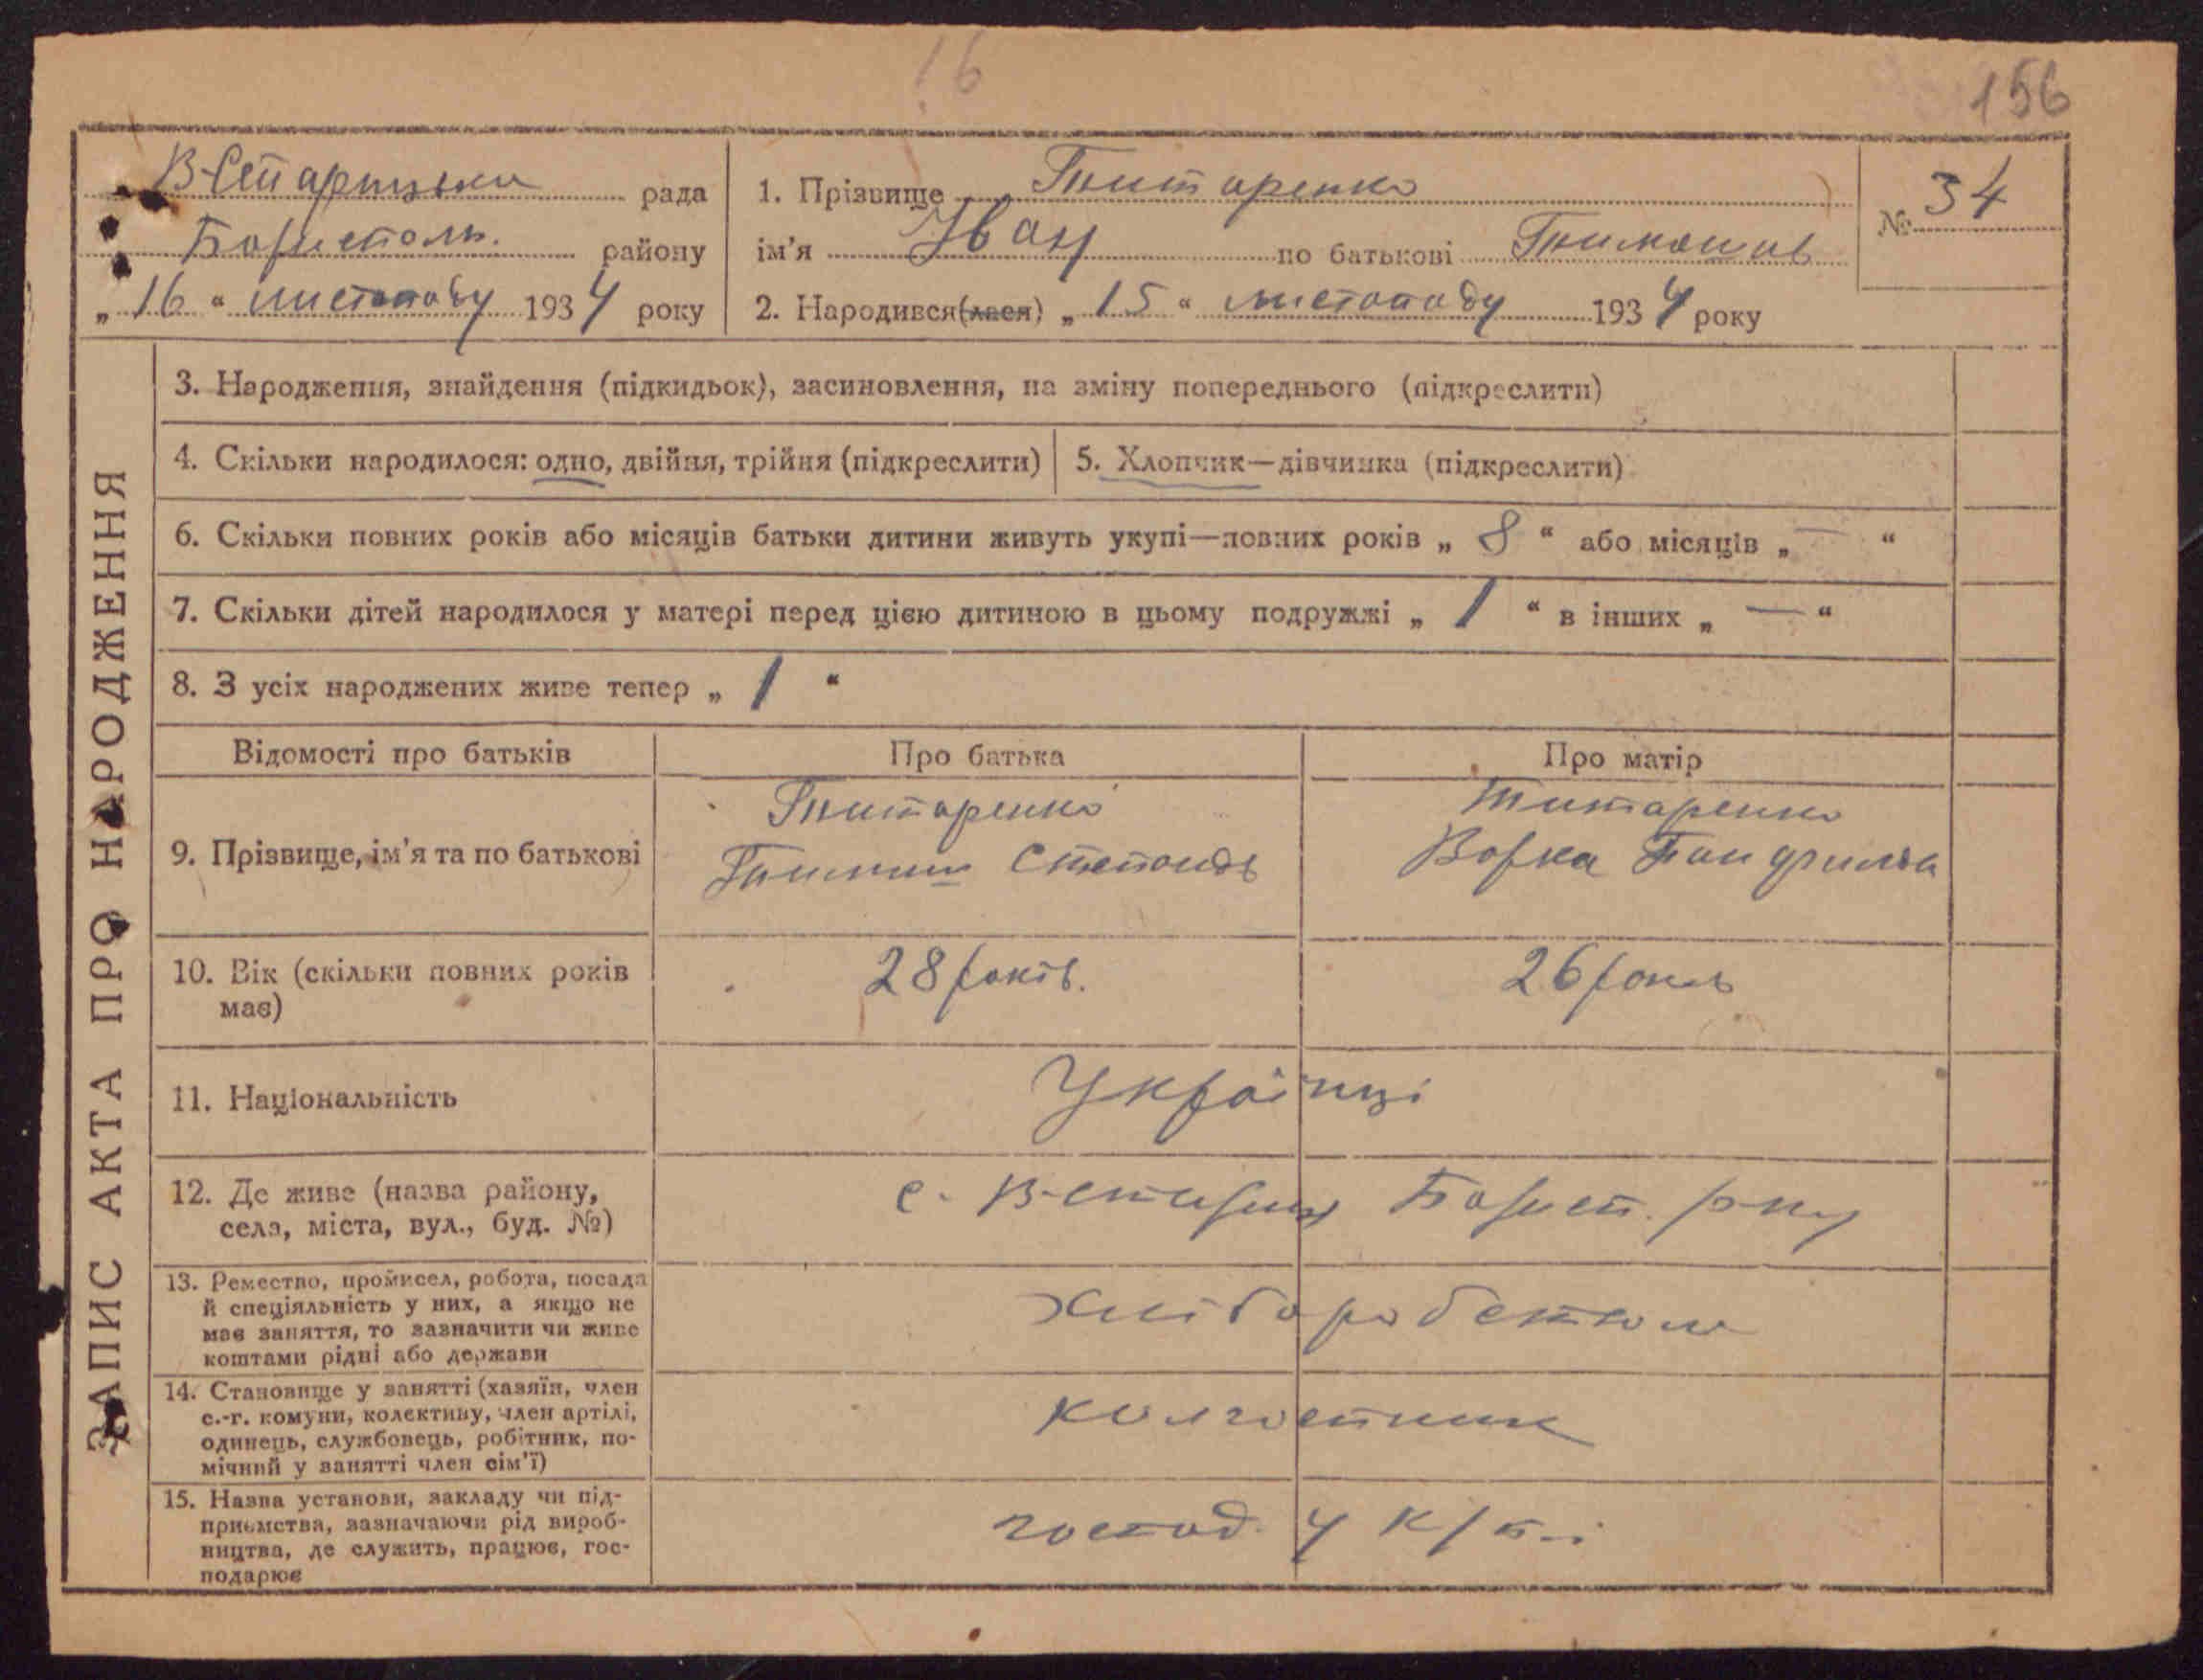 16
156
В-Старицька рада
Бориспольс. району
„ 16 “ листопаду 1934 року
1. Прізвище Титаренко
ім'я Іван по батькові Тимошів
2. Народився(лася) „ 15 “ листопаду 1934 року
№ 34
ЗАПИС АКТА ПРО НАРОДЖЕННЯ
3. Народження, знайдення (підкидьок), засиновлення, на зміну попереднього (підкреслити)
4. Скільки народилося: одно, двійня, трійня (підкреслити)
5. Хлопчик—дівчинка (підкреслити)
6. Скільки повних років або місяців батьки дитини живуть укупі—повних років „ 8 “ або місяців „ — “
7. Скільки дітей народилося у матері перед цією дитиною в цьому подружжі „ 1 “ в інших „ — “
8. З усіх народжених живе тепер „ 1 “
Відомості про батьків
Про батька
Про матір
9. Прізвище, ім'я та по батькові
Титаренко
Степанов
Титаренко
Варка
10. Вік (скільки повних років
має)
28 років.
26 років
11. Національність
Українці
12. Де живе (назва району,
села, міста, вул., буд. №)
с. В-Стариця Борисп. р-ну
13. Ремество, промисел, робота, посада
й спеціяльність у них, а якщо не
має заняття, то зазначити чи живе
коштами рідні або держави
хліборобством
14. Становище у занятті (хазяїн, член
с.-г. комуни, колективу, член артілі,
одинець, службовець, робітник, по-
мічний у занятті член сім'ї)
колгоспник
15. Назва установи, закладу чи під-
приємства, зазначаючи рід вироб-
ництва, де служить, працює, гос-
подарює
господ. у к/г-і